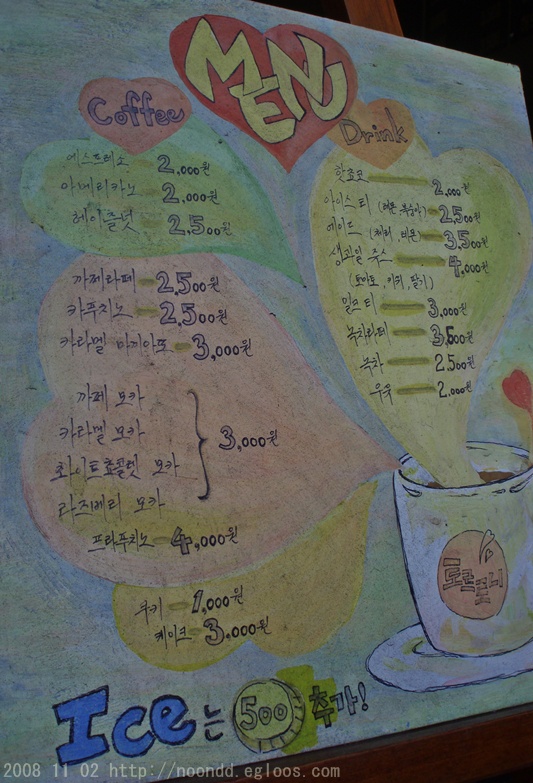 MENU
Coffee
에스프레소 2,000원
아메리카노 2,000원
헤이즐넛 2,500원
까페라떼 2,500원
카푸치노 2,500원
카라멜 마끼아또 3,000원
까페 모카
카라멜 모카
화이트쵸콜렛 모카
라즈베리 모카
3,000원
프라푸치노 4,000원
쿠키 1,000원
케이크 3,000원
Drink
핫쵸코 2,000원
아이스티 (레몬 복숭아) 2,500원
에이드 (체리, 레몬) 3,500원
생과일 주스 4,000원
(토마토, 키위, 딸기)
밀크티 3,000원
녹차라떼 3,500원
녹차 2,500원
우유 2,000원
Ice는 500 추가!
2008 11 02 http://noondd.egloos.com